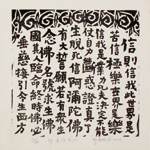 信則信我世界是
苦信極樂世界是樂
信我是業力凡夫決定不能
仗自力斷惑證真了
生脫死信阿彌陀佛
有大誓願若有衆生
念佛名號求生佛
國其人臨命終時佛必
垂慈接引生西方